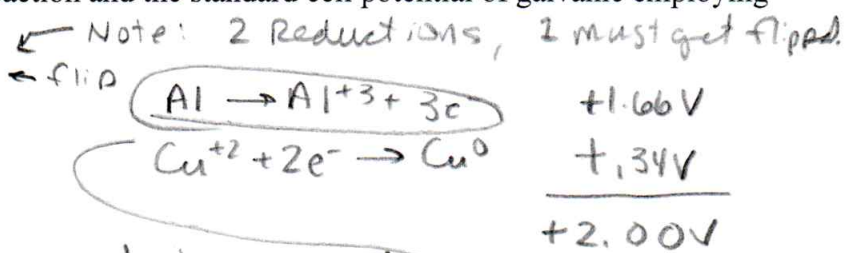 action and the standard cell potential of galvanic employing
Note: 2 Reductions, 1 must get flipped.
← flip
Al → Al+3 + 3e +1.66V
Cu+2 + 2e- → Cu0 +.34V
+2.00V